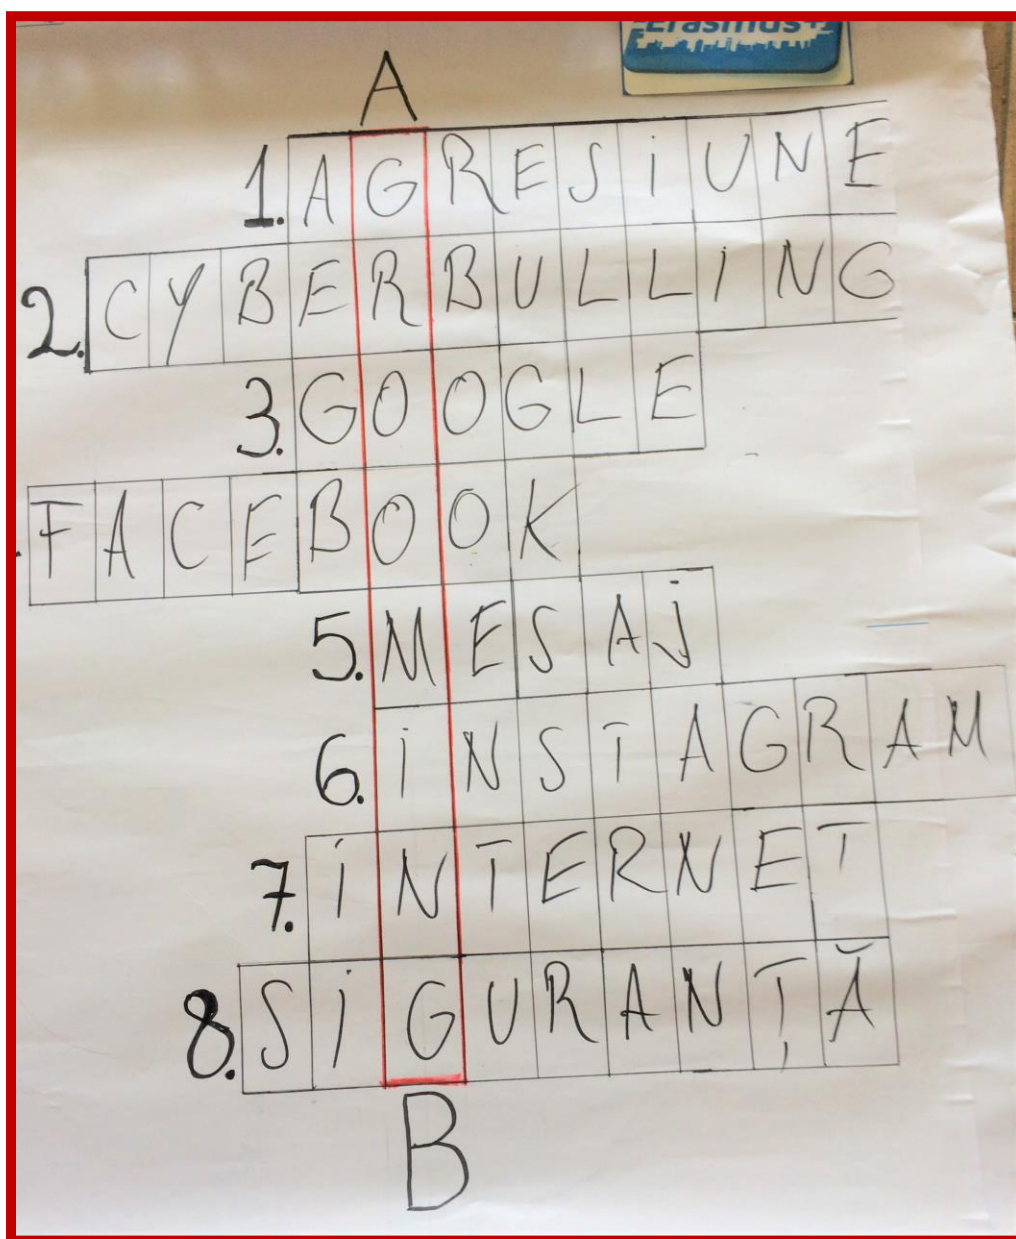 Erasmus+
A
1. AGRESIUNE
2. CYBERBULLING
3. GOOGLE
. FACEBOOK
5. MESAJ
6. INSTAGRAM
7. INTERNET
8. SIGURANȚĂ
B